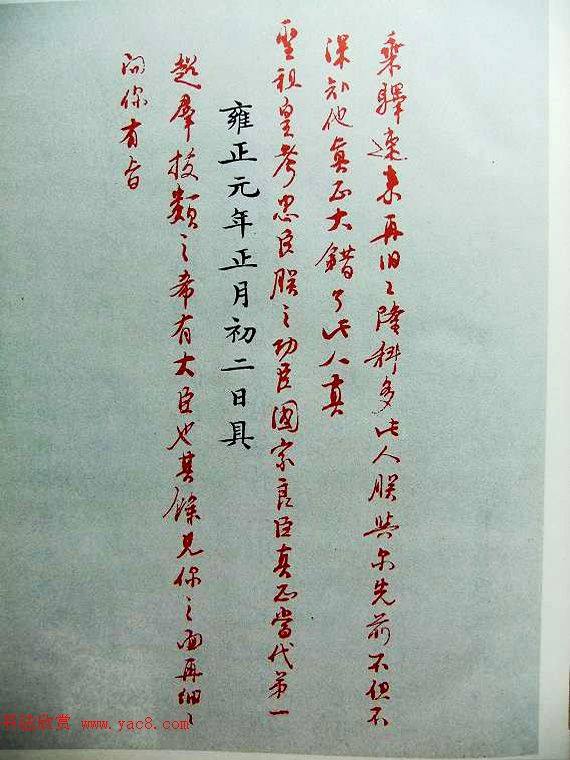 乘驛速来再旧ゝ隆科多此人朕與尔先前不但不
深知他真正大錯了此人真
聖祖皇考忠臣朕之功臣國家良臣真正當代第一
雍正元年正月初二日具
超羣拔類之希有大臣也其餘見你之面再細ゝ
问你有旨
书法欣赏 www.yac8.com